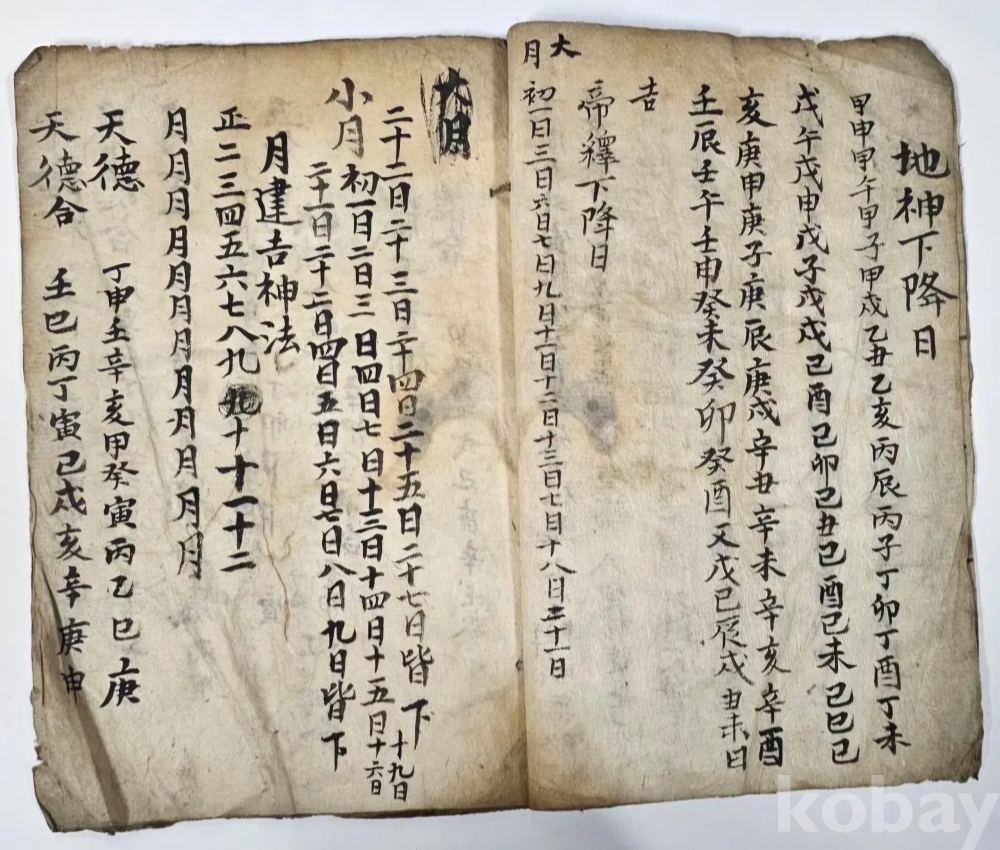 地神下降日
甲申甲午甲子甲戌乙丑乙亥丙辰丙子丁卯丁酉丁未
戊午戊申戊子戊戌己酉己卯己丑己酉己未己巳己
亥庚申庚子庚辰庚戌辛丑辛未辛亥辛酉
壬辰壬午壬申癸未癸卯癸酉又戊己辰戌丑未日
吉
帝釋下降日
大月
初一日三日六日七日九日十一日十二日十三日七日十八日二十一日
大月
二十二日二十三日二十四日二十五日二十七日皆下
十九日
小月
初一日二日三日四日七日十三日十四日十五日十六日
二十一日二十二日四日五日六日七日八日九日皆下
月建吉神法
正二三四五六七八九十十一十二
月月月月月月月月月月月月
天德 丁申壬辛亥甲癸寅丙乙巳庚
天德合 壬巳丙丁寅己戌亥辛庚申
kobay